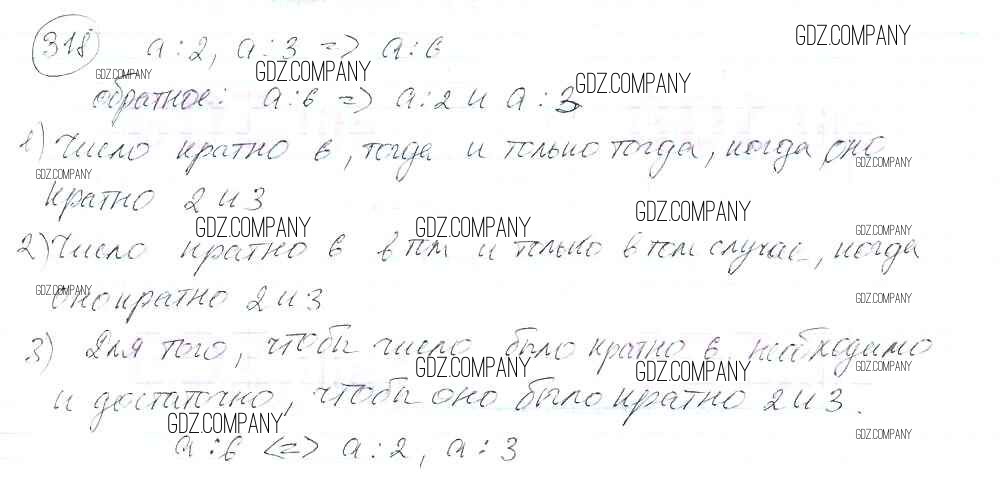 318 a : 2, a : 3 => a : 6
GDZ.COMPANY
GDZ.COMPANY GDZ.COMPANY GDZ.COMPANY
обратное: a : 6 => a : 2 и a : 3
1) Число кратно 6, тогда и только тогда, когда оно
GDZ.COMPANY GDZ.COMPANY
кратно 2 и 3
GDZ.COMPANY GDZ.COMPANY GDZ.COMPANY GDZ.COMPANY
2) Число кратно 6 в том и только в том случае, когда
GDZ.COMPANY GDZ.COMPANY
оно кратно 2 и 3
3) Для того, чтобы число было кратно 6, необходимо
GDZ.COMPANY GDZ.COMPANY GDZ.COMPANY
и достаточно, чтобы оно было кратно 2 и 3.
GDZ.COMPANY GDZ.COMPANY
a : 6 <=> a : 2, a : 3